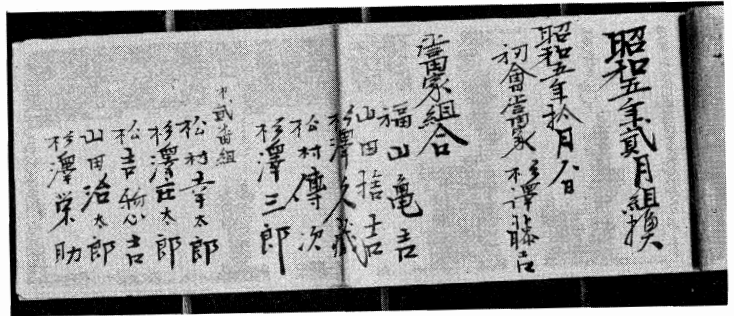 昭和五年貳月組換
昭和五年拾月八日
初會當家 杉澤藤吉
當家組合
福山亀吉
山田捨吉
杉澤久蔵
松村傳次
杉澤三郎
貳番組
松村幸太郎
杉澤庄太郎
松吉惣吉
山田治太郎
杉澤栄助